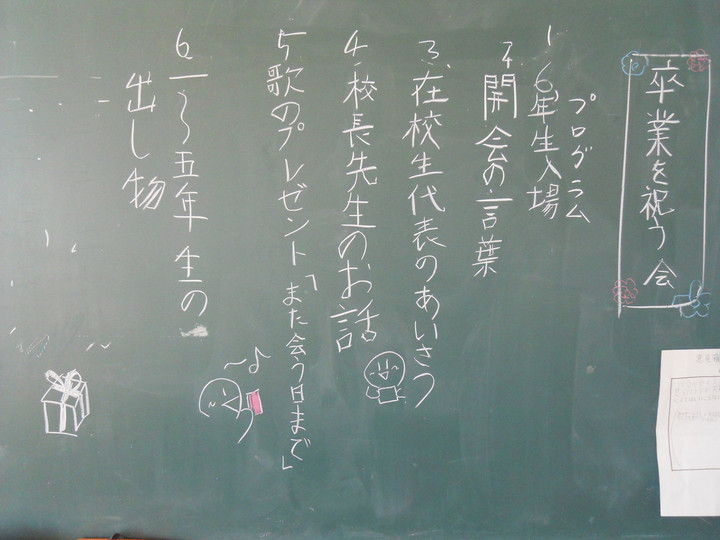 卒業を祝う会
プログラム
1、6年生入場
2、開会の言葉
3、在校生代表のあいさつ
4、校長先生のお話
5、歌のプレゼント「また会う日まで」
6、一〜五年生の
出し物